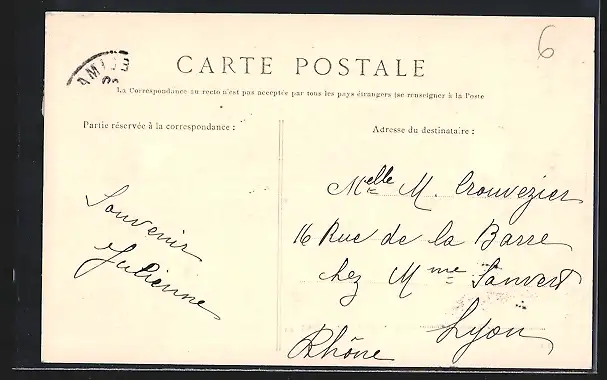 6
CARTE POSTALE
La Correspondance au recto n'est pas acceptée par tous les pays étrangers (se renseigner à la Poste
Partie réservée à la correspondance :
Souvenir
Julienne
Adresse du destinataire :
Melle M. Crouvezier
16 Rue de la Barre
chez Mme Sanvert
Lyon
Rhône